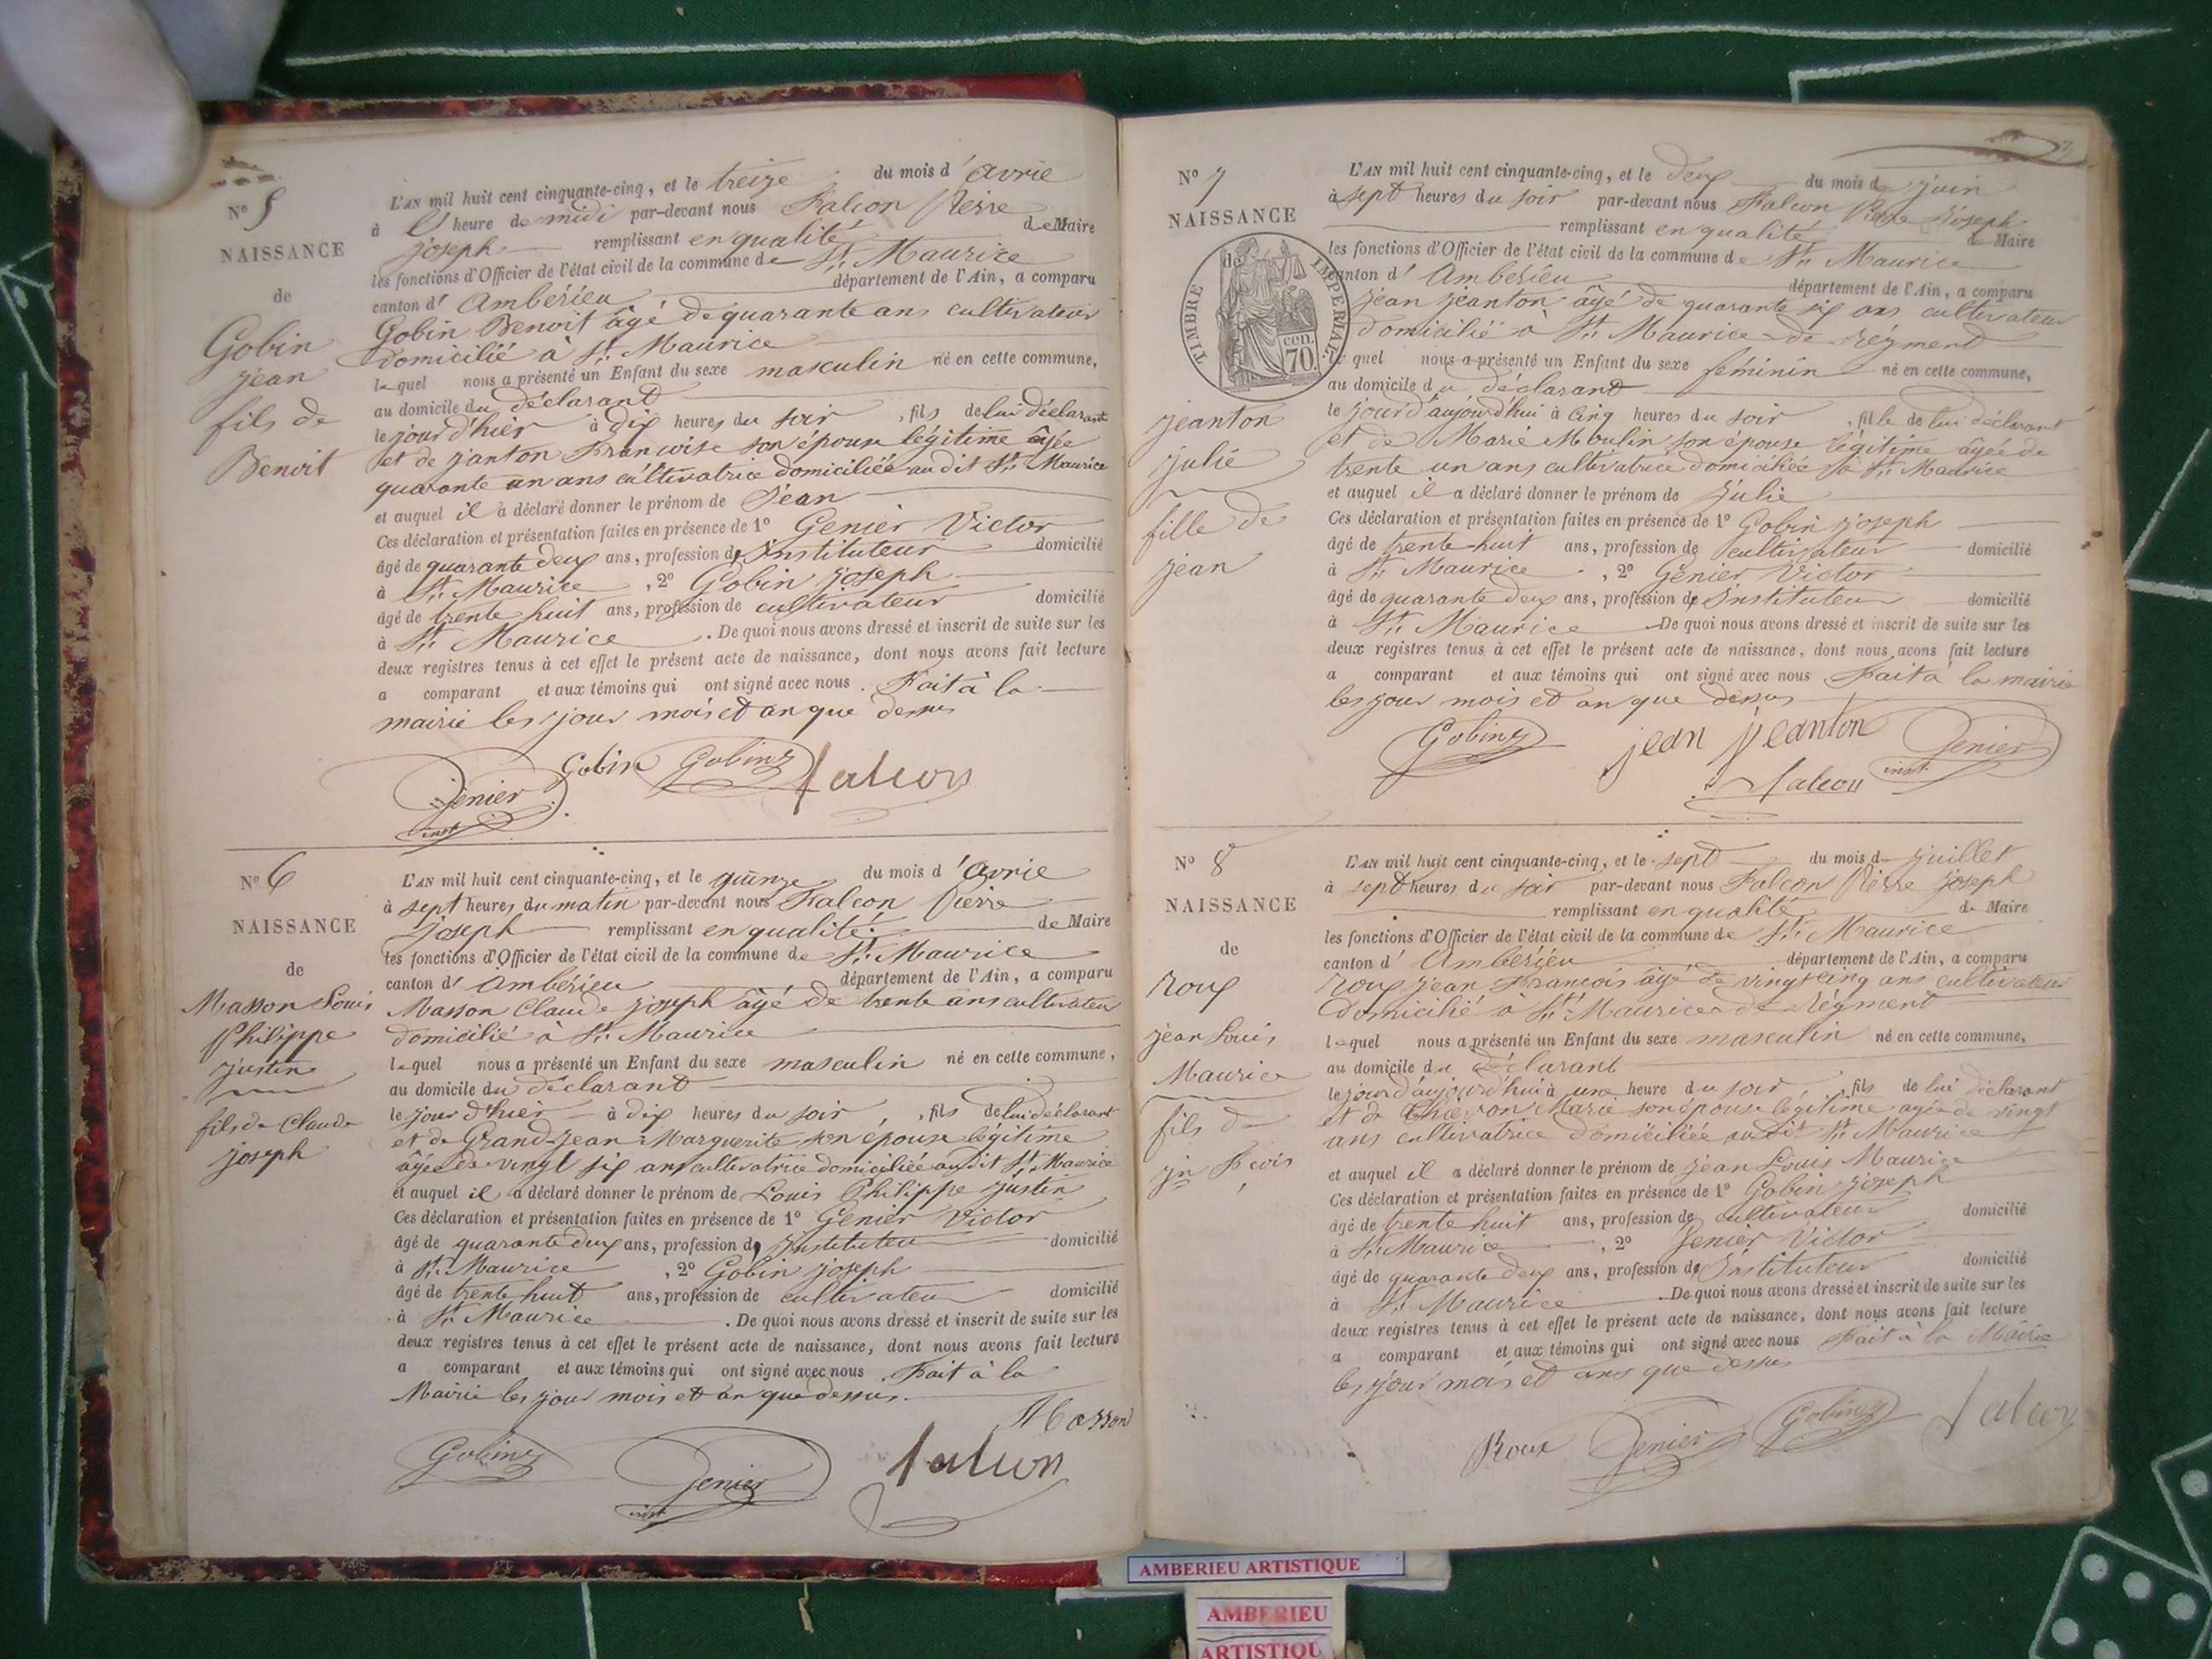 N° 5
NAISSANCE
de
Gobin
jean
fils de
Benoit
L'AN mil huit cent cinquante-cinq, et le treize du mois d'avril
à heure de midi par-devant nous Falcon Pierre
joseph remplissant en qualité de Maire
les fonctions d'Officier de l'état civil de la commune de St. Maurice
canton d'Ambérieu département de l'Ain, a comparu
Gobin Benoit âgé de quarante ans cultivateur
domicilié à St. Maurice
lequel nous a présenté un Enfant du sexe masculin né en cette commune,
au domicile du déclarant
le jour d'hier à dix heures du soir, fils de lui déclarant
et de janton Francoise son épouse légitime âgée
quarante un ans cultivatrice domiciliée au dit St. Maurice
et auquel il a déclaré donner le prénom de Jéan
Ces déclaration et présentation faites en présence de 1° Genier Victor
âgé de quarante deux ans, profession de Instituteur domicilié
à St. Maurice, 2° Gobin joseph
âgé de trente huit ans, profession de cultivateur domicilié
à St. Maurice. De quoi nous avons dressé et inscrit de suite sur les
deux registres tenus à cet effet le présent acte de naissance, dont nous avons fait lecture
a comparant et aux témoins qui ont signé avec nous. Fait à la
mairie les jour mois et an que dessus
Genier inst. Gobin Gobin Falcon
N° 6
NAISSANCE
de
Masson Louis
Philippe
justin
fils de Claude
joseph
L'AN mil huit cent cinquante-cinq, et le quinze du mois d'avril
à sept heures du matin par-devant nous Falcon Pierre
joseph remplissant en qualité de Maire
les fonctions d'Officier de l'état civil de la commune de St. Maurice
canton d'Ambérieu département de l'Ain, a comparu
Masson Claude joseph âgé de trente ans cultivateur
domicilié à St. Maurice
lequel nous a présenté un Enfant du sexe masculin né en cette commune,
au domicile du déclarant
le jour d'hier à dix heures du soir, fils de lui déclarant
et de Grand-jean Marguerite son épouse légitime
âgée de vingt six ans cultivatrice domiciliée audit St. Maurice
et auquel il a déclaré donner le prénom de Louis Philippe justin
Ces déclaration et présentation faites en présence de 1° Genier Victor
âgé de quarante deux ans, profession d Instituteur domicilié
à St. Maurice, 2° Gobin joseph
âgé de trente huit ans, profession de cultivateur domicilié
à St. Maurice. De quoi nous avons dressé et inscrit de suite sur les
deux registres tenus à cet effet le présent acte de naissance, dont nous avons fait lecture
a comparant et aux témoins qui ont signé avec nous. Fait à la
Mairie les jour mois et an que dessus.
Masson
Gobin Genier inst. Falcon
3
N° 7
NAISSANCE
de
TIMBRE IMPERIAL
70 cen.
jeanton
julie
fille de
jean
L'AN mil huit cent cinquante-cinq, et le deux du mois de juin
à sept heures du soir par-devant nous Falcon Pierre Joseph
remplissant en qualité de Maire
les fonctions d'Officier de l'état civil de la commune de St. Maurice
canton d'Ambérieu département de l'Ain, a comparu
jean jeanton âgé de quarante six ans cultivateur
domicilié à St. Maurice de Rément
le quel nous a présenté un Enfant du sexe féminin né en cette commune,
au domicile du déclarant
le jour d'aujourd'hui à cinq heures du soir, fille de lui déclarant
et de Marie Moulin son épouse légitime âgée de
trente un ans cultivatrice domiciliée à St. Maurice
et auquel il a déclaré donner le prénom de Julie
Ces déclaration et présentation faites en présence de 1° Gobin joseph
âgé de trente-huit ans, profession de cultivateur domicilié
à St. Maurice, 2° Génier Victor
âgé de quarante deux ans, profession de Instituteur domicilié
à St. Maurice De quoi nous avons dressé et inscrit de suite sur les
deux registres tenus à cet effet le présent acte de naissance, dont nous avons fait lecture
a comparant et aux témoins qui ont signé avec nous Fait à la mairie
les jour mois et an que dessus
Gobin jean jeanton Genier inst.
Falcon
N° 8
NAISSANCE
de
Roux
jean Louis
Maurice
fils de
jn Fcois
L'AN mil huit cent cinquante-cinq, et le sept du mois de juillet
à sept heures du soir par-devant nous Falcon Pierre joseph
remplissant en qualité de Maire
les fonctions d'Officier de l'état civil de la commune de St. Maurice
canton d'Ambérieu département de l'Ain, a comparu
Roux jean Francois âgé de vingt cinq ans cultivateur
Domicilié à St. Maurice de Rément
lequel nous a présenté un Enfant du sexe masculin né en cette commune,
au domicile du Déclarant
le jour d'aujourd'hui à une heure du soir, fils de lui déclarant
et de Marie son épouse légitime agée de vingt
ans cultivatrice domiciliée audit St. Maurice
et auquel il a déclaré donner le prénom de jean Louis Maurice
Ces déclaration et présentation faites en présence de 1° Gobin joseph
âgé de trente huit ans, profession de cultivateur domicilié
à St. Maurice, 2° Genier Victor
âgé de quarante deux ans, profession de Instituteur domicilié
à St. Maurice De quoi nous avons dressé et inscrit de suite sur les
deux registres tenus à cet effet le présent acte de naissance, dont nous avons fait lecture
a comparant et aux témoins qui ont signé avec nous Fait à la Mairie
les jour mois et ans que dessus
Roux Genier Gobin Falcon
AMBERIEU ARTISTIQUE
AMBERIEU
ARTISTIQU